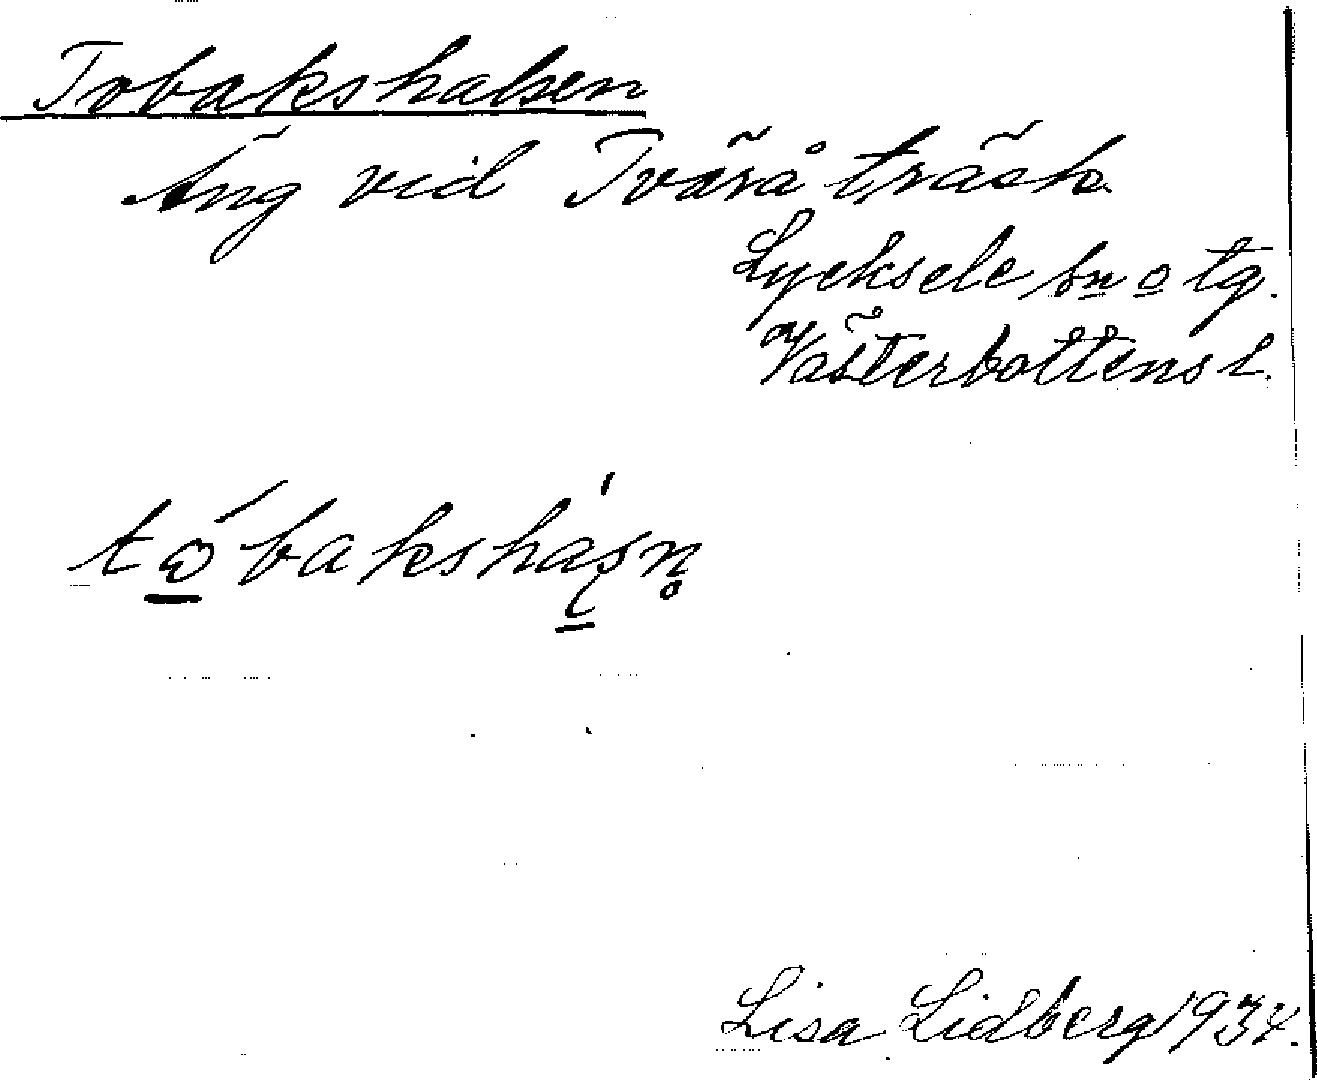 Tobakshalsen
Äng vid Tväråträsk.
Lycksele sn o tg.
Västerbottens l.
Lisa Lidberg 1934.